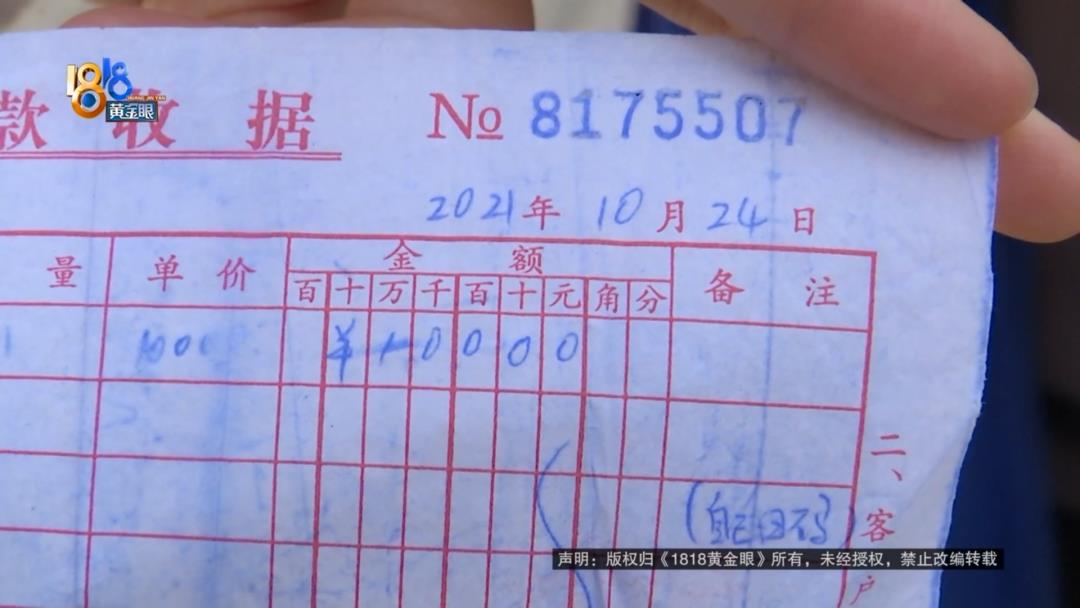 1818
HUANG JIN YAN
黄金眼
款 收 据 No 8175507
2021年 10月 24日
量 单价 金额 备注
百 十 万 千 百 十 元 角 分
1 1000 ¥ 1 0 0 0 0
二、客户
声明:版权归《1818黄金眼》所有,未经授权,禁止改编转载